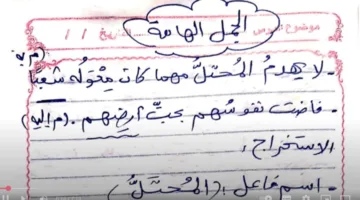 موضوع الدرس التاريخ / /
الجمل الهامة
(م. به)
- لا يهزمُ المُحتلُّ مهما كانت قوته شعبًا
- فاضت نفوسهم بحبِّ أرضِهم. (م. إليه)
الاستخراج:
- اسم فاعل: (المُحْتَلُّ)